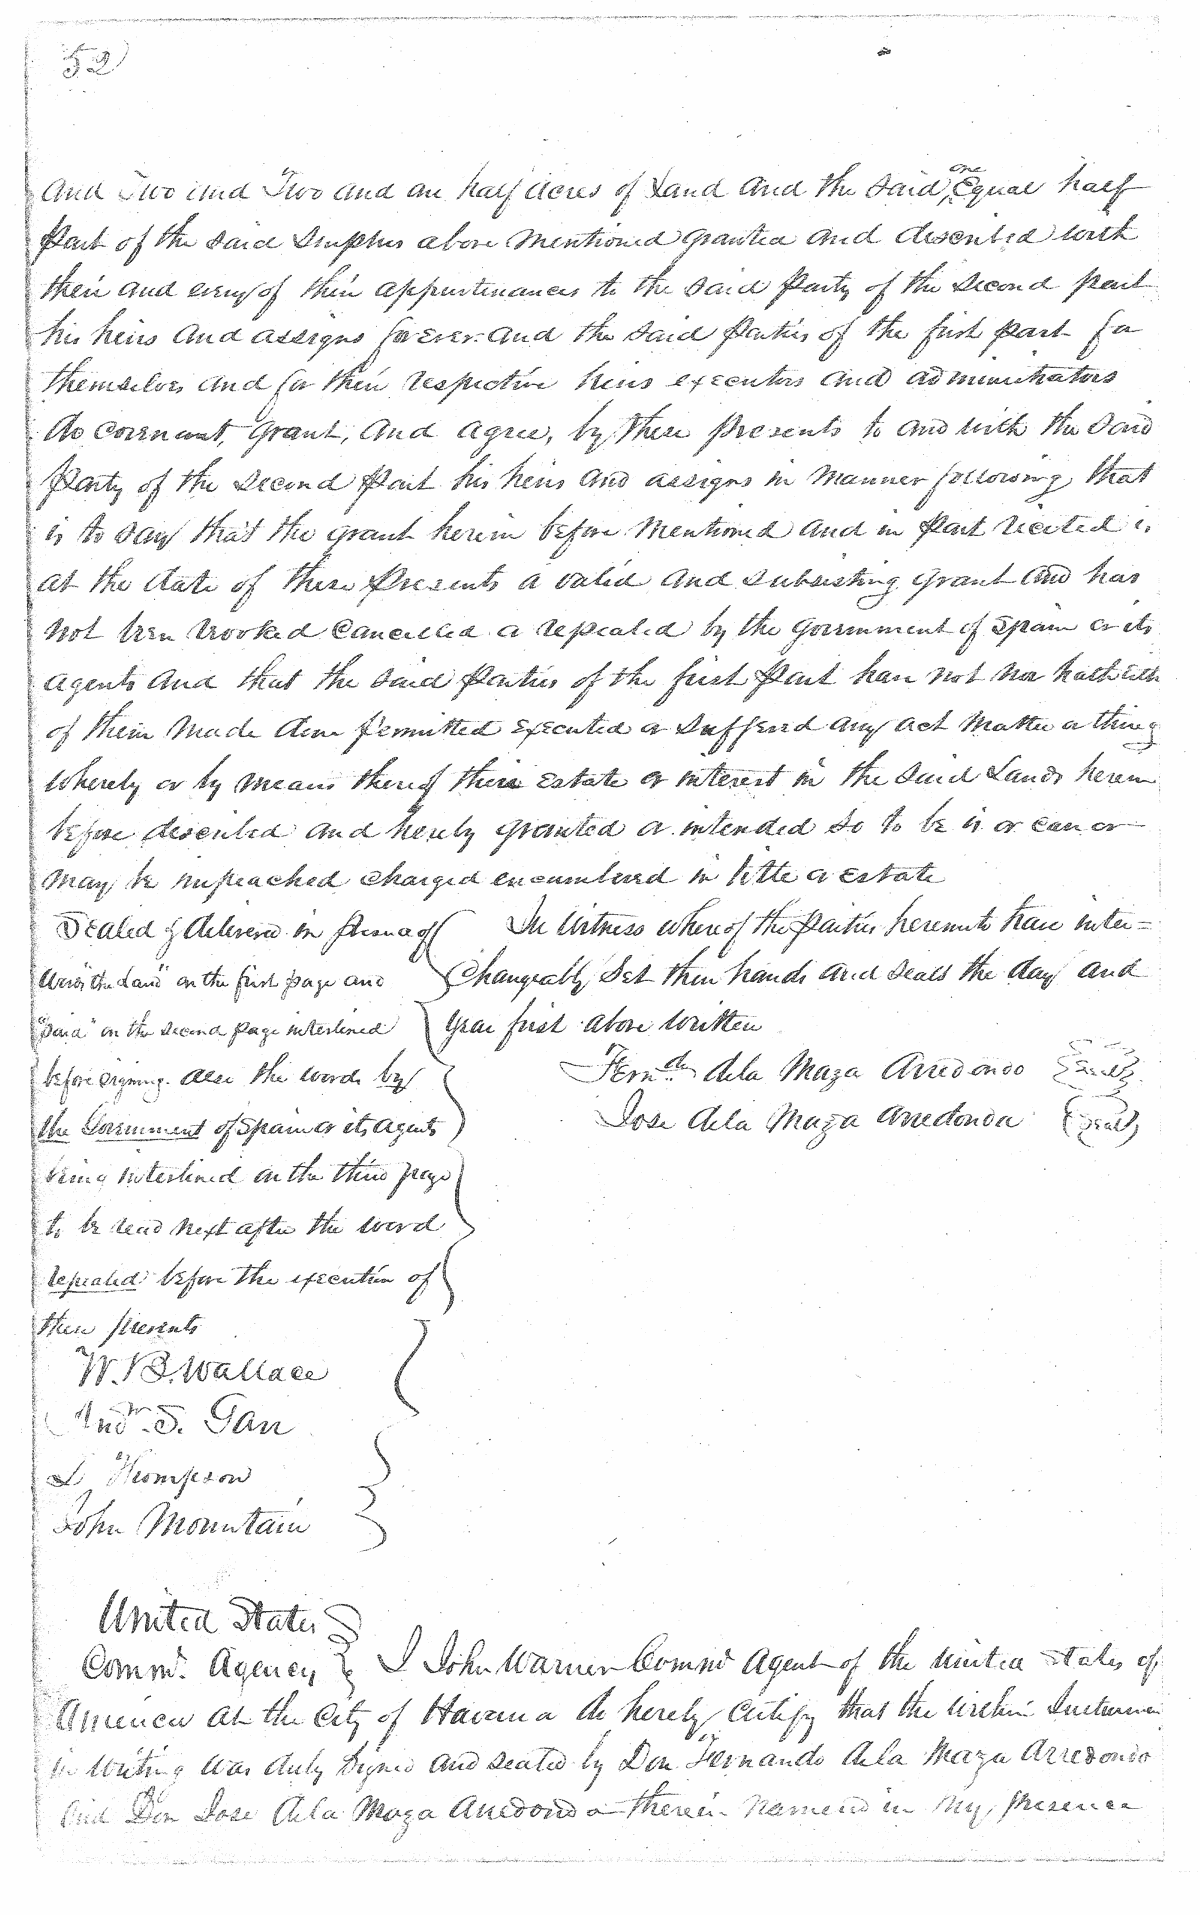 52
And Two and Two and one half Acres of Land And the Said, one Equal half
Part of the said Surplus above Mentioned granted and described with
their and every of their appurtenances to the said Party of the Second part
his heirs And assigns forever. And the said Parties of the first Part for
themselves and for their respective heirs executors and administrators
do covenant, grant, and agree, by these presents to and with the Said
Party of the Second Part his heirs and assigns in Manner following, that
is to say that the grant herein before Mentioned and in Part recited is
at the date of these Presents a valid and subsisting grant and has
not been revoked Cancelled or repealed by the Government of Spain or its
agents And that the said Parties of the first Part have not nor hath Eith
of them Made done permitted executed or suffered any act Matter or thing
whereby or by means thereof their Estate or interest in the Said Lands herein
before described and hereby granted or intended so to be is or can or
may be impeached charged encumbered in title or Estate
Sealed & delivered in presence of
In Witness whereof the Parties hereunto have inter=
Words "the Land" on the first page and
changeably Set their hands and Seals the day and
"said" on the second page interlined
year first above written
before signing. Also the words by
Ferndo dela Maza Arredondo (Seal)
the Government of Spain or its agents
Jose dela Maza Arredondo (Seal)
being interlined on the third page
to be read next after the word
repealed before the execution of
these presents
W. B. Wallace
Thompson
John Mountain
United States
Comml. Agency } I John Warner Comml Agent of the United States of
America at the City of Havana do hereby Certify that the within Instrumen
in Writing was duly Signed and sealed by Don Fernando dela Maza Arredondo
and Don Jose dela Maza Arredondo therein Named in My presence